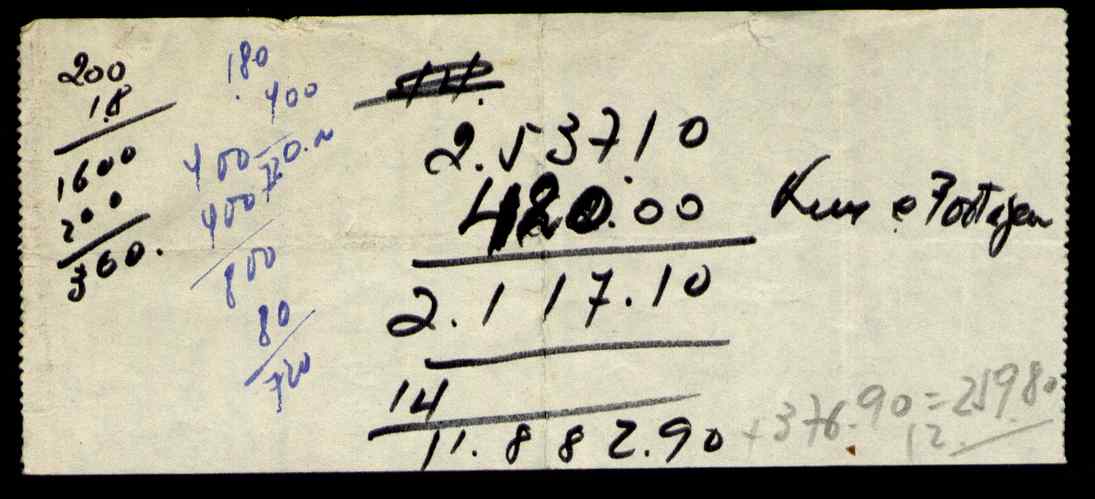 200
18
1600
200
360.
180
400
400
400
800
80
720
2.537.10
420.00
2.117.10
14
11.882.90 + 376.90 = 259.80
12.